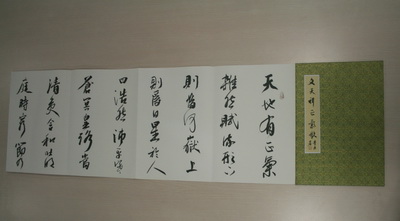 文天祥正氣歌
天地有正氣
雜然賦流形下
則為河嶽上
則為日星於人
曰浩然沛乎塞
蒼冥皇路當
清夷含和吐明
庭時窮節乃